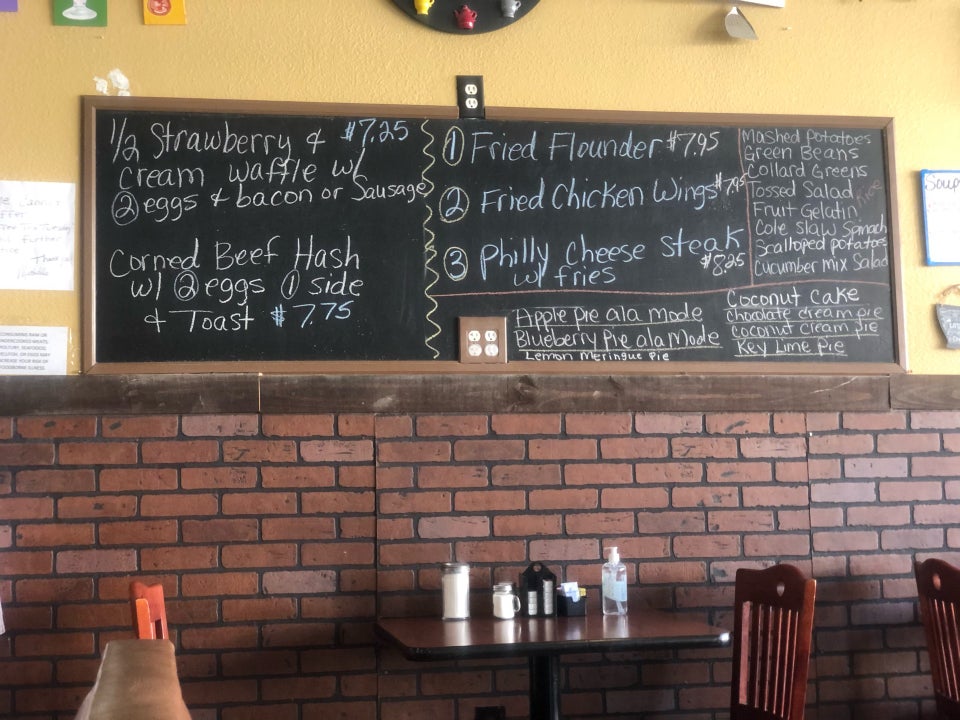 1/2 Strawberry & $7.25
cream waffle w/
2 eggs & bacon or Sausage
Corned Beef Hash
w/ 2 eggs 1 side
& Toast $7.75
1 Fried Flounder $7.95
2 Fried Chicken Wings $7.95
3 Philly Cheese Steak
w/ fries $8.25
Mashed Potatoes
Green Beans
Collard Greens
Tossed Salad
Rice
Fruit Gelatin
Cole Slaw Spinach
Scalloped potatoes
Cucumber Mix Salad
Apple Pie ala mode
Blueberry Pie ala Mode
Lemon Meringue Pie
Coconut Cake
Chocolate cream pie
Coconut cream pie
Key Lime Pie
Soup
CONSUMING RAW OR
UNDERCOOKED MEATS,
POULTRY, SEAFOOD,
SHELLFISH, OR EGGS MAY
INCREASE YOUR RISK OF
FOODBORNE ILLNESS